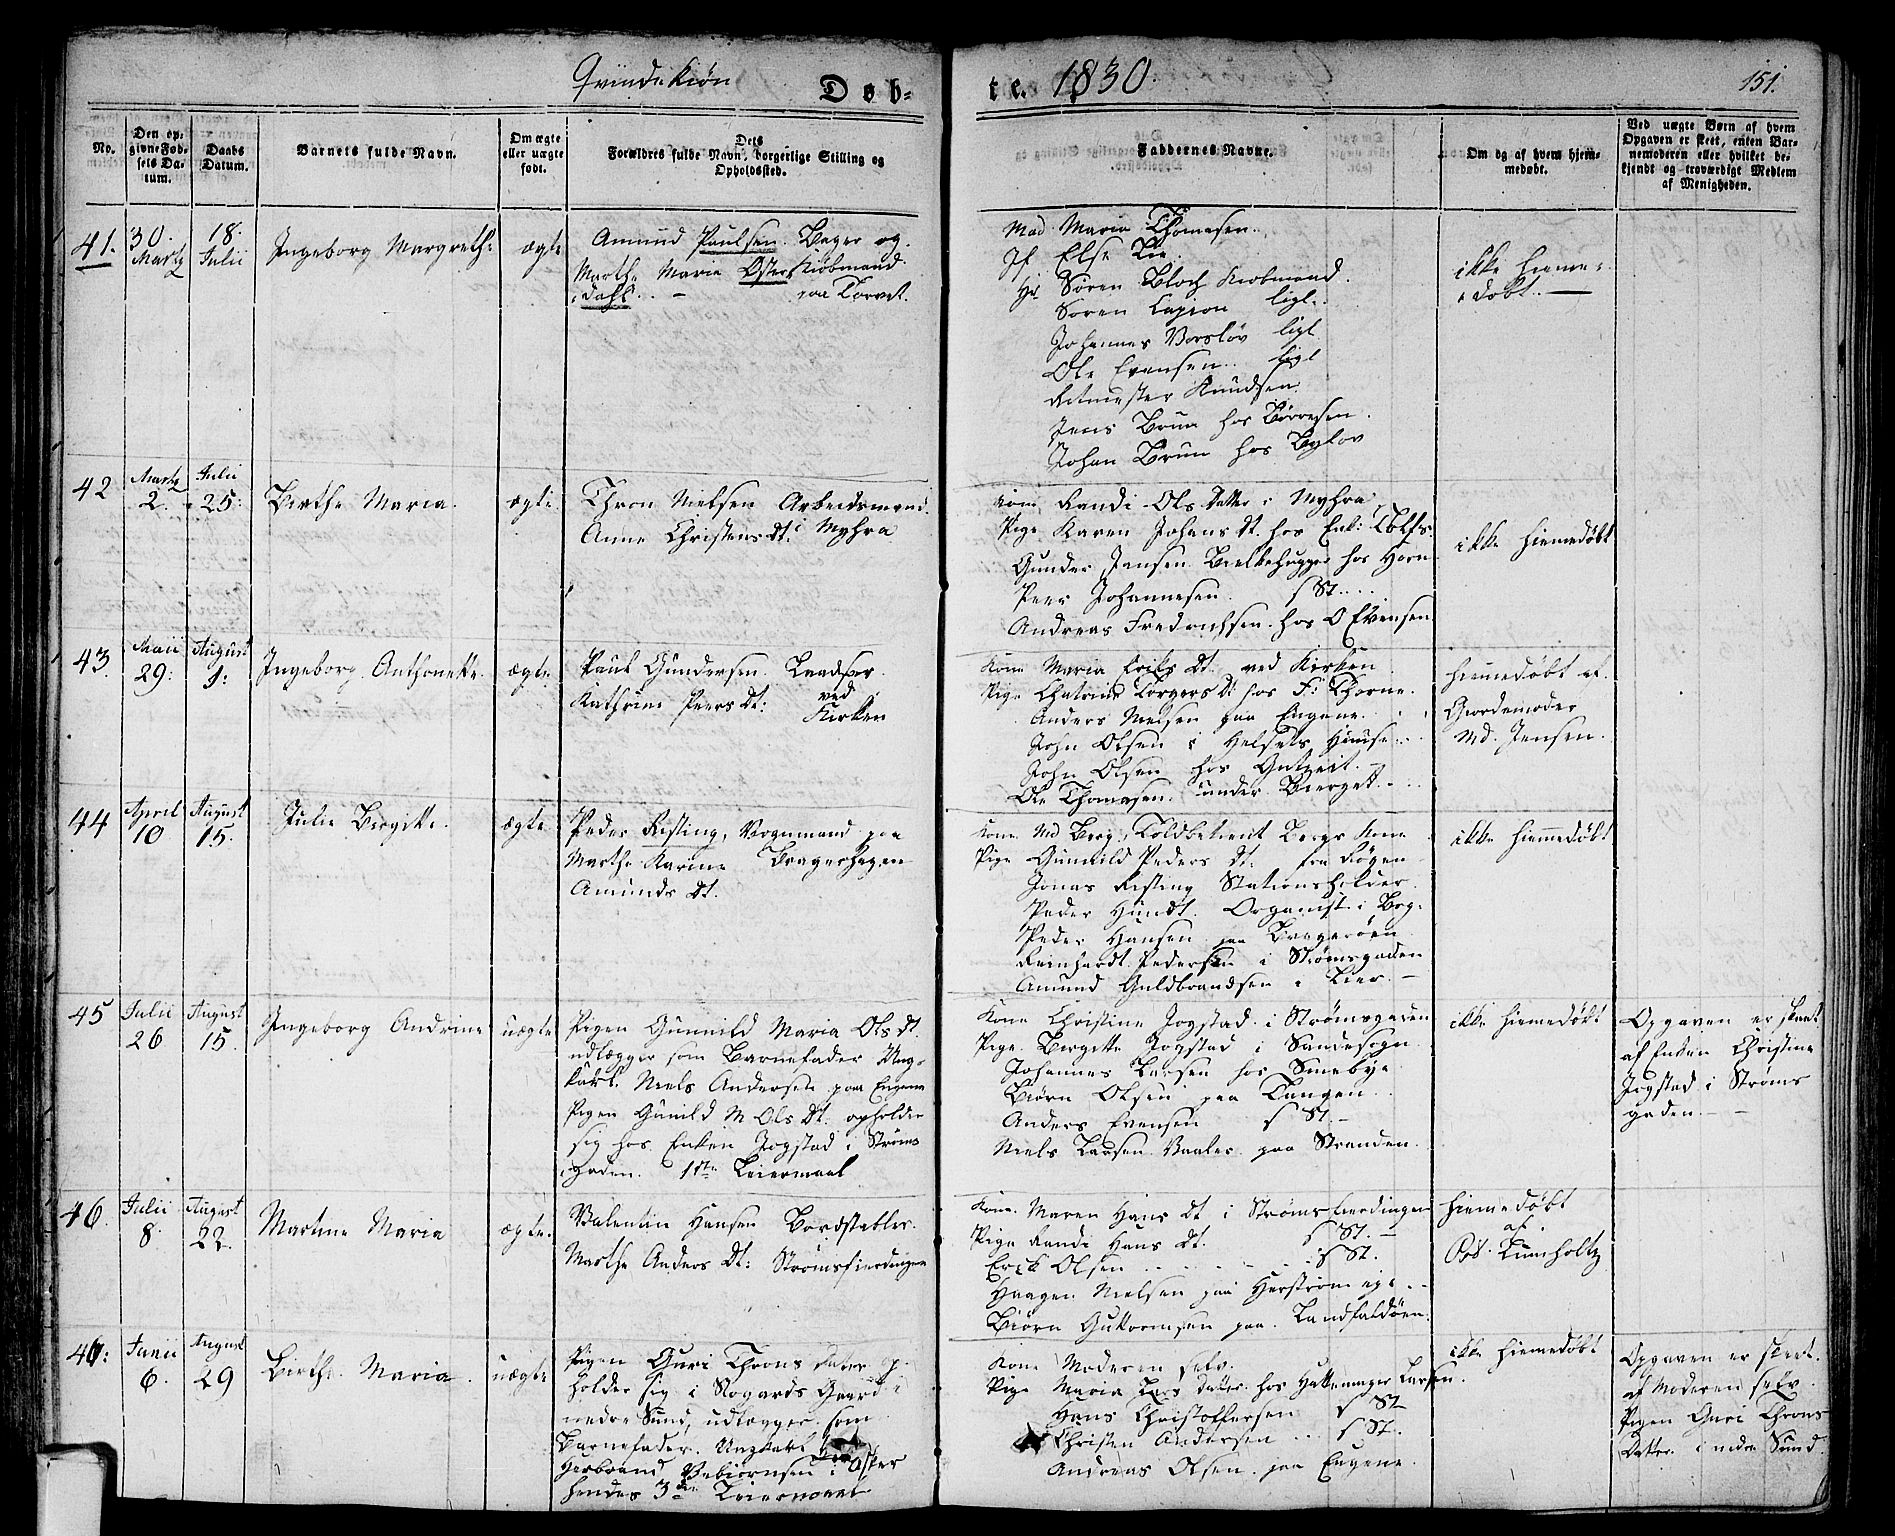 Qvindekiøn
Døb=
te. 1830.
151.
No.
Den op=
givne Fød=
sels Da=
tum.
Daabs
Datum.
Barnets fulde Navn.
Om ægte
eller uægte
født.
Dets
Forældres fulde Navn, borgerlige Stilling og
Opholdssted.
Faddernes Navne.
Om og af hvem hjem=
medøbt.
Ved uægte Børn af hvem
Opgaven er skeet, enten Bar=
nemoderen eller hvilket be=
kjendt og troværdigt Medlem
af Menigheden.
41.
30.
Martz
18.
Julii
Ingeborg Margrethe
ægte
Amund Paulsen. Bager og
Marthe Maria Oster Kiøbmand
dahl. - paa Torvet.
Mad. Maria Thomesen.
Jf. Else Lie.
Hr Søren Bloch Kiobmand.
Soren ligl.
Johannes Vorsløv ligl
Ole Evensen. ligl
Ritmester Knudsen
Jens Brun hos Børresen.
Johan Brun hos Bylov
ikke hieme=
døbt. -
42
Martz
2.
Julii
25.
Birthe Maria.
ægte
Thron Nielsen Arbeidsmand.
Anne Christens Dt. i Myhra
Kone Randi Ols Datter i Myhra
Pige Karen Johans Dt. hos Enk:
Gunder Jensen Bielkehugger hos Horn
Peer Johannesen. s St....
Andreas Fredrichsen. hos O Evensen
ikke hiemedøbt
43.
Maii
29:
August
1:
Ingeborg Anthonette.
ægte
Paul Gundersen. Baadsør.
Kathrine Peers Dt: ved
Kirken
Kone Maria Eriks Dt. ved Kirken
Pige Chatrine Torgers Dt hos F: Thorne.
Anders Nielsen paa Engene.
John Olsen i Helsets Huuse...
John Olsen hos Gutzeit.
Ole Thomesen. under Bierget.
hiemedøbt af
Giordemoder
Md. Jensen.
44
April
10
August
15.
Julie Birgitte.
ægte
Peder Risting, Vognmand paa
Marthe Karine Bragerhagen
Amunds Dt.
Kone Md Berg, Toldbetient Bergs Kone
Pige Gunnild Peders Dt. fra Røgen
Jonas Risting Stationsholder.
Peder Hundt. Organist i Brg.
Peder Hansen paa Bragerøen
Reinhardt Pedersen i Strømsgaden
Amund Guldbrandsen i Lier. -
ikke hiemmedøbt
45
Julii
26
August
15.
Ingeborg Andrine
uægte
Pigen Gunnild Maria Ols Dt.
udlægger som Barnefader Ung=
karl. Niels Andersen paa Engene
Pigen Gunild M Ols Dt. opholder
sig hos Enken Jogstad i Strøms
gaden. 1ste Leiermaal
Kone Christine Jogstad i Strømsgaden
Pige. Birgitte Jogstad i Sandesogn.
Johannes Larsen hos Smebye.
Biørn Olsen paa Tangen..
Anders Evensen s St. -
Niels Larsen Vaaler paa Stranden.
ikke hiemedøbt
Opgaven er skeet
af Enken Christine
Jogstad i Strøms
gaden. -
46.
Julii
8.
August
22.
Martine Maria
ægte.
Valentin Hansen Bordstabler
Marthe Anders Dt: Strømsfierdingen
Kone. Maren Hans Dt i Strømsfierdingen
Pige Randi Hans Dt. s St. -
Erich Olsen.... s St.
Haagen Nielsen paa
Biørn Guttormsen paa Landfaldøen.
hiemedøbt
af
Lumholtz
47:
Junii
6.
August
29
Birthe Maria.
uægte
Pigen Guri Throns Datter op
holder sig i Nogards Gaard i
nedre Sund, udlægger som
Barnefader. Ungkarl
Herbrand i Asker
hendes 3die Leiermaal
Kone Moderen selv.
Pige Maria Lars Datter hos Hattemager Larsen.
Hans Christoffersen s St
Christen Andersen... s St.
Andreas Olsen. paa Engene.
ikke hiemedøbt
Opgaven er skeet.
af Moderen selv.
Pigen Guri Throns
Datter. i nedre Sund.